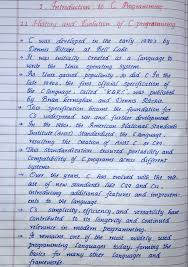 1. Introduction to C Programming
1.1 History and Evolution of C programming
→ C was developed in the early 1970's by
Dennis Ritchie at Bell Labs
→ It was initially created as a language to
write the Unix operating system.
→ As Unix gained popularity, so did C. In the
late 1970s, the first official specification of
the C language, called "K&R C" was published
by Brian Kernighan and Dennis Ritchie.
→ This specification became the foundation for
C's widespread use and further development.
→ In the 1980s the American National Standards
Institute (ANSI) standardized the C language,
resulting the creation of ANSI C or C89.
→ This standardization ensured portability and
compatibility of C programs across different
systems
→ Over the years, C has evolved with the rele-
ase of new standards like C99 and C11,
introducing additional features and improvem-
ents to the language.
→ C's simplicity, efficiency, and versatility have
contributed to its longevity and continued
relevance in modern programming.
→ It remains one of the most widely used
programming languages today, forming the
basis for many other languages and
frameworks